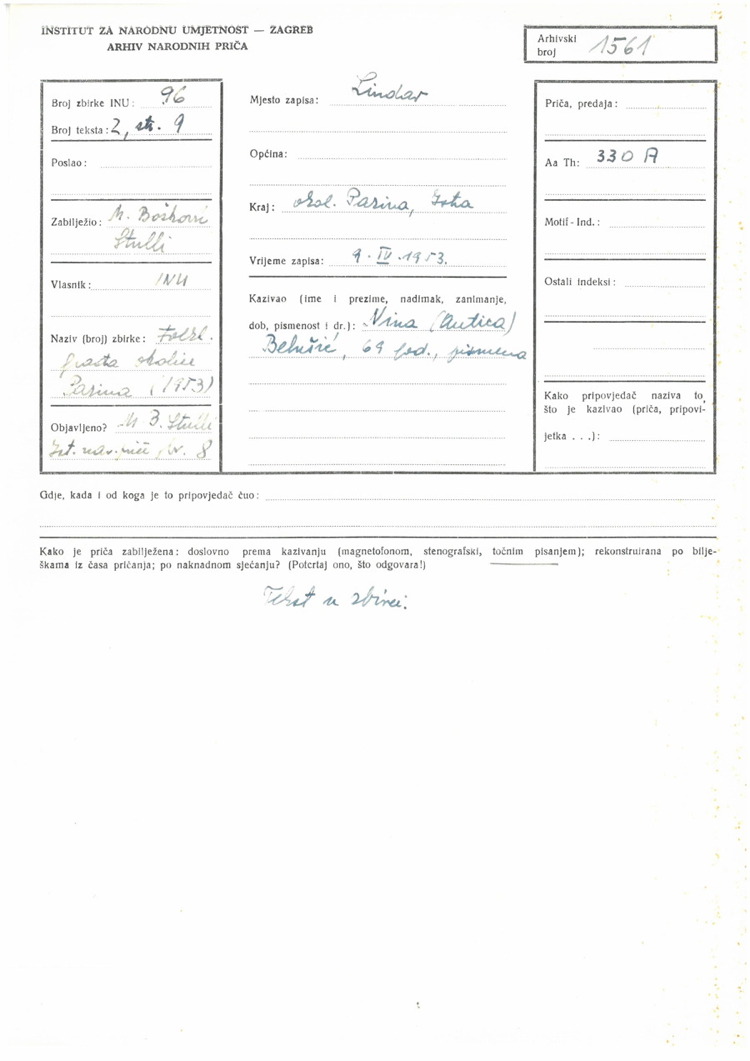 INSTITUT ZA NARODNU UMJETNOST — ZAGREB
ARHIV NARODNIH PRIČA
Arhivski broj 1561
Broj zbirke INU: 96
Broj teksta: 2, str. 9
Poslao:
Zabilježio: M. Bošković
Stulli
Vlasnik: INU
Naziv (broj) zbirke: Folkl.
građa okolice
Pazina (1953)
Objavljeno? M B. Stulli
Ist. nar. priče, br. 8
Mjesto zapisa: Lindar
Općina:
Kraj: okol. Pazina, Istra
Vrijeme zapisa: 9. IV. 1953.
Kazivao (ime i prezime, nadimak, zanimanje,
dob, pismenost i dr.): Nina (Antica)
Belušić, 69 god., pismena
Priča, predaja:
Aa Th: 330 A
Motif - Ind.:
Ostali indeksi:
Kako pripovjedač naziva to,
što je kazivao (priča, pripovi-
jetka . . .):
Gdje, kada i od koga je to pripovjedač čuo:
Kako je priča zabilježena: doslovno prema kazivanju (magnetofonom, stenografski, točnim pisanjem); rekonstruirana po bilje-
škama iz časa pričanja; po naknadnom sjećanju? (Potcrtaj ono, što odgovara!)
Tekst u zbirci.